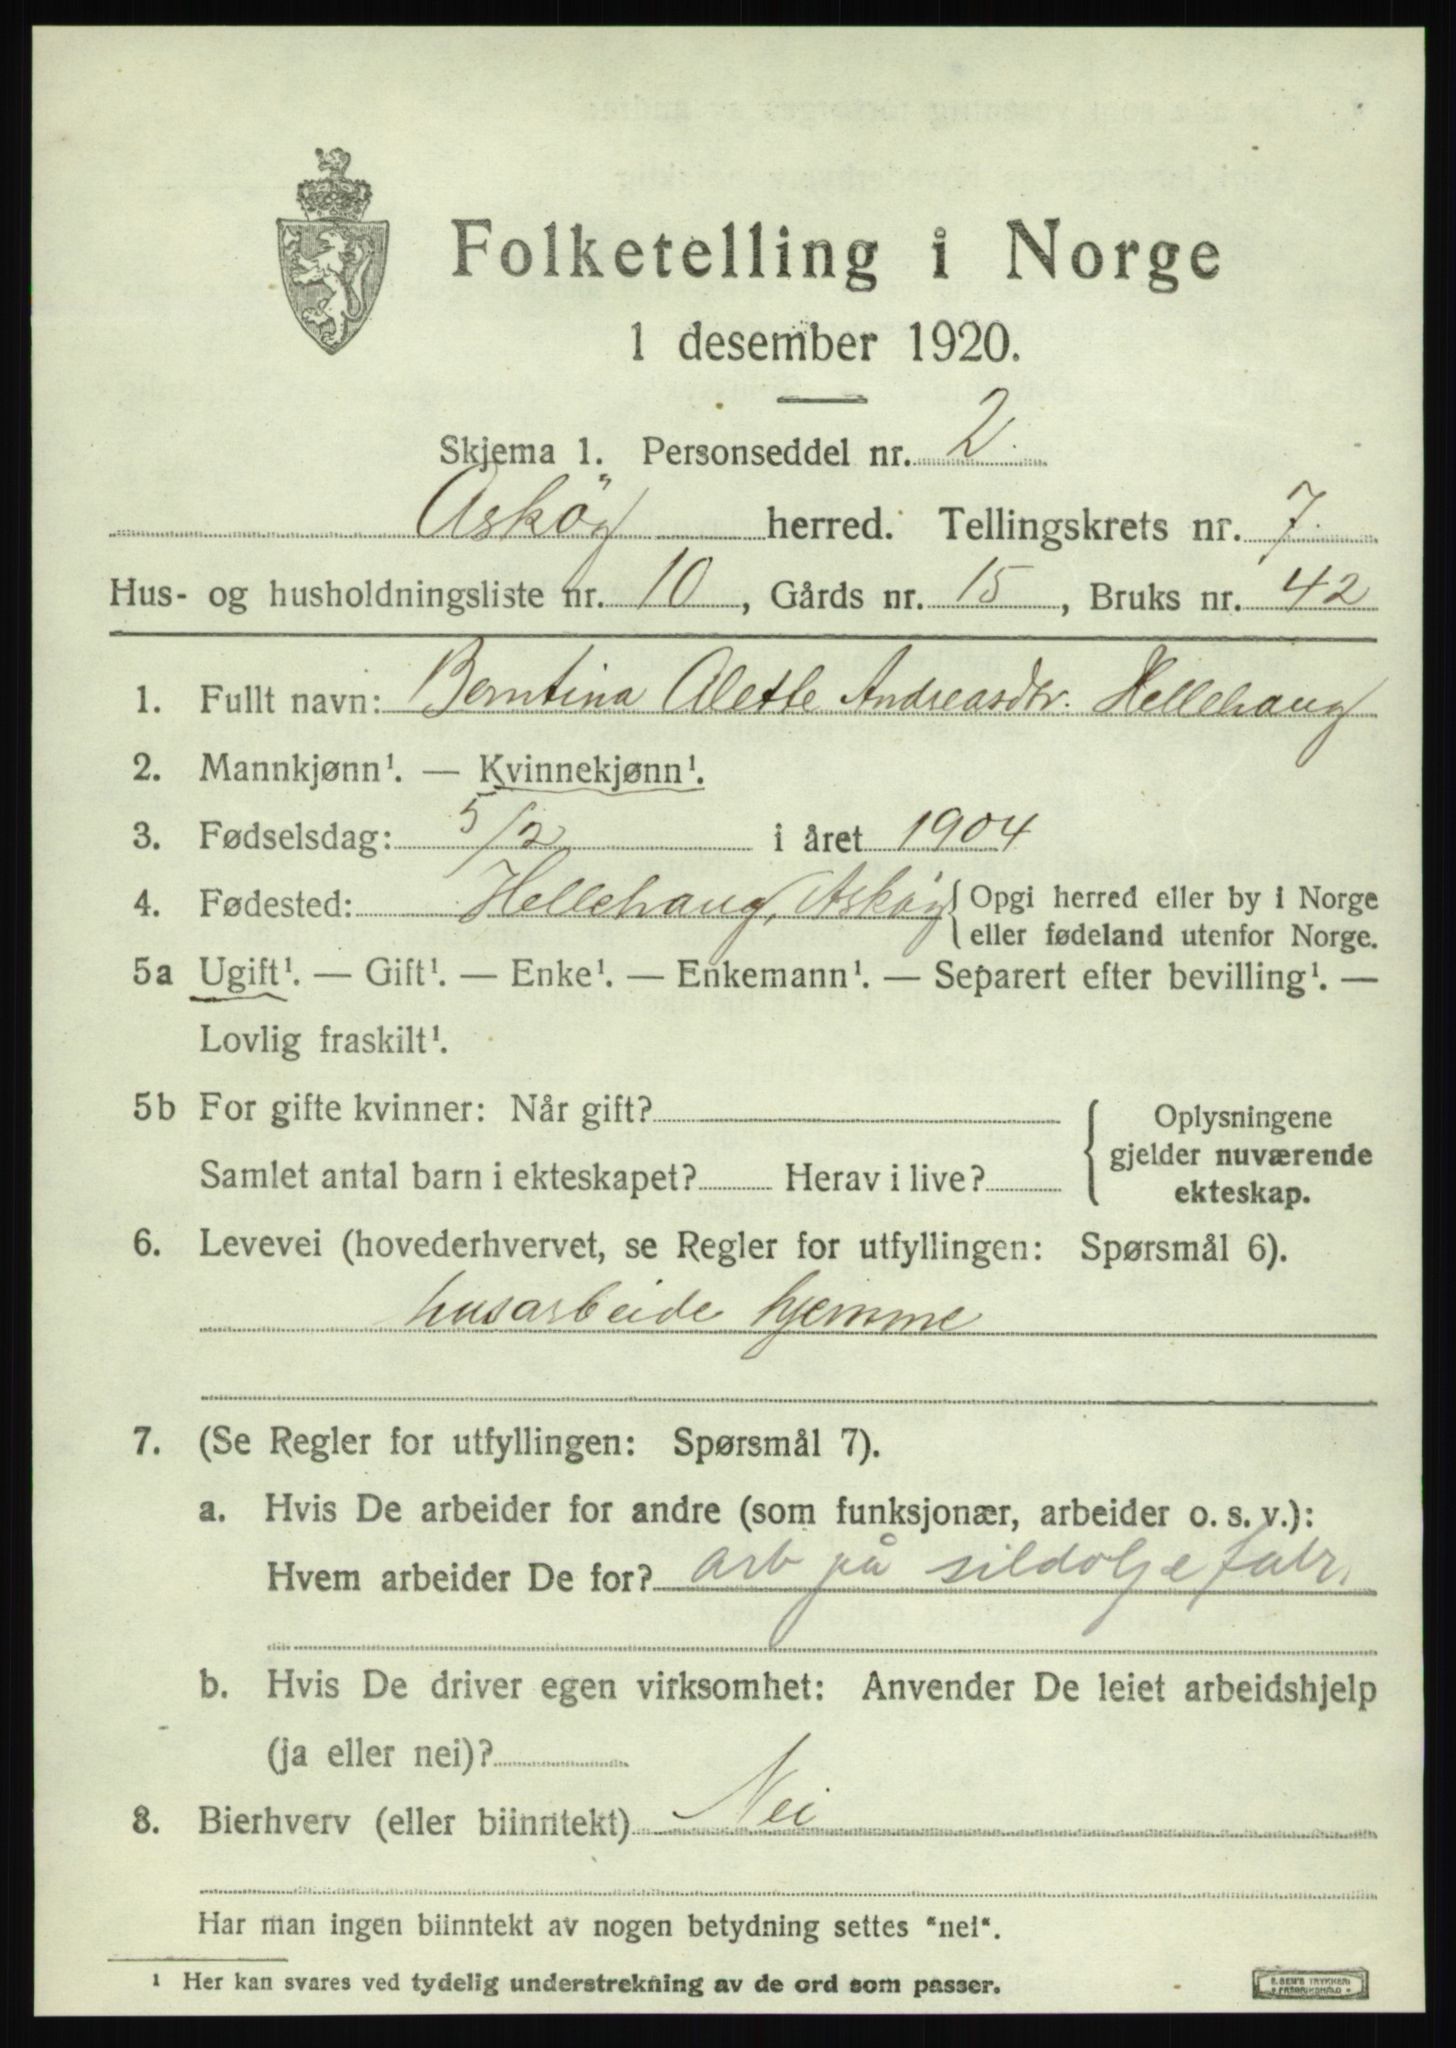 Folketelling i Norge
1 desember 1920.
Skjema 1. Personseddel nr. 2.
Askøy herred. Tellingskrets nr. 7.
Hus- og husholdningsliste nr. 10, Gårds nr. 15, Bruks nr. 42
1. Fullt navn: Berntina Alette Andreasdtr. Hellehaug
2. Mannkjønn¹. — Kvinnekjønn¹.
3. Fødselsdag: 5/2 i året 1904
4. Fødested: Hellehaug, Askøy { Opgi herred eller by i Norge
eller fødeland utenfor Norge.
5a Ugift¹. — Gift¹. — Enke¹. — Enkemann¹. — Separert efter bevilling¹. —
Lovlig fraskilt¹.
5b For gifte kvinner: Når gift?
Samlet antal barn i ekteskapet? Herav i live?
{ Oplysningene
gjelder nuværende
ekteskap.
6. Levevei (hovederhvervet, se Regler for utfyllingen: Spørsmål 6).
husarbeide hjemme
7. (Se Regler for utfyllingen: Spørsmål 7).
a. Hvis De arbeider for andre (som funksjonær, arbeider o. s. v.):
Hvem arbeider De for? arb på sildoljefabr.
b. Hvis De driver egen virksomhet: Anvender De leiet arbeidshjelp
(ja eller nei)?
8. Bierhverv (eller biinntekt) Nei
Har man ingen biinntekt av nogen betydning settes "nei".
¹ Her kan svares ved tydelig understrekning av de ord som passer.
E. SEM'S TRYKKERI
FREDRIKSHALD